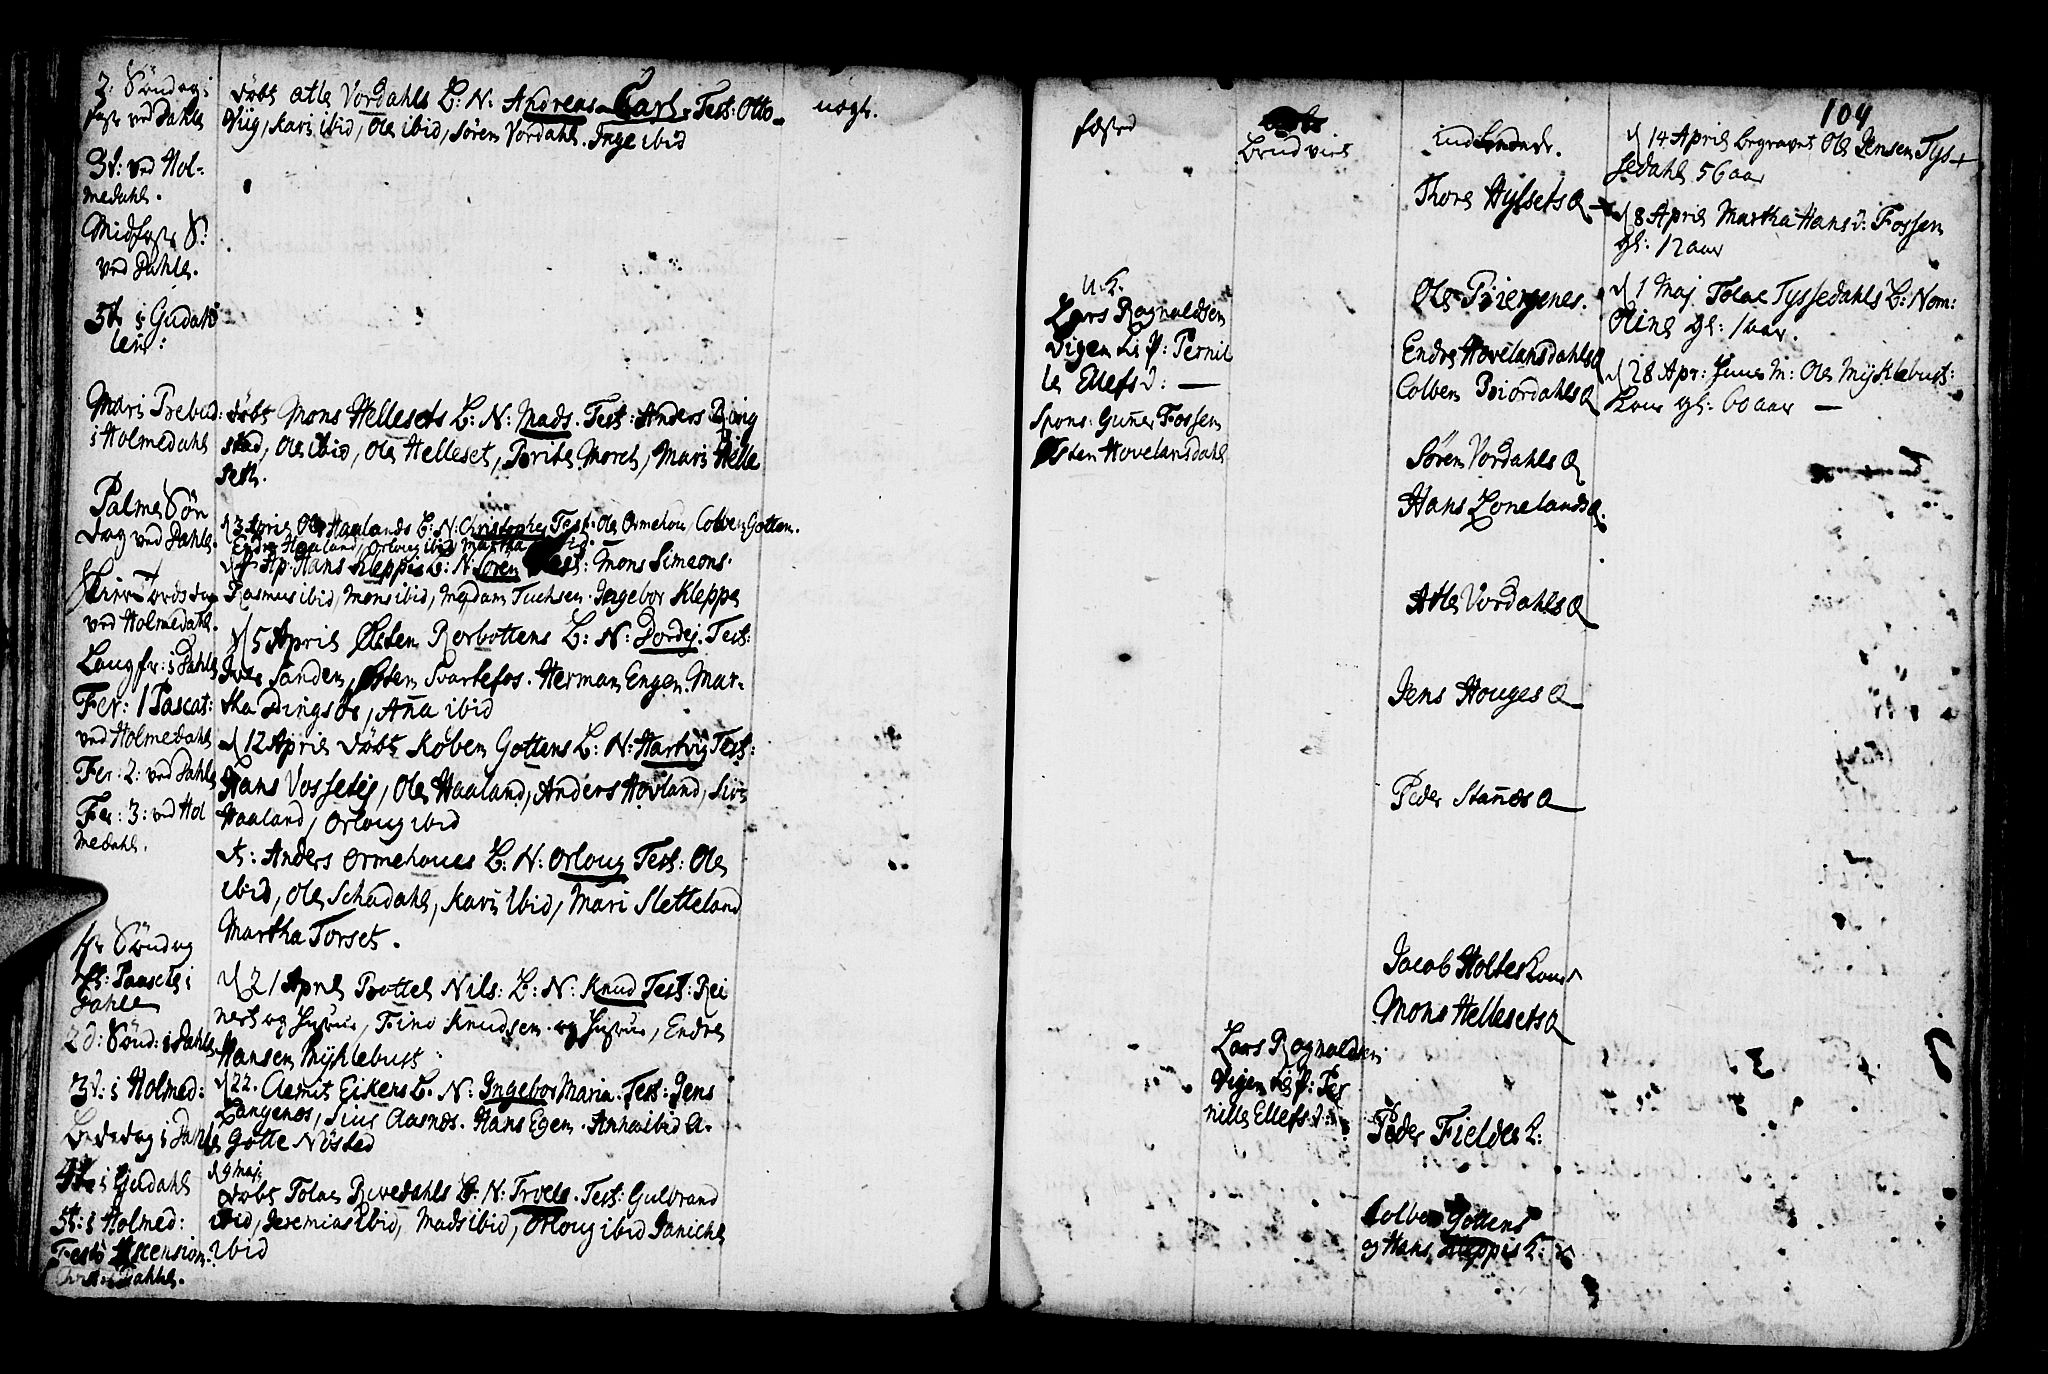 2: Søndag i
faste ved Dahle
3d: ved Hol-
medahl.
Midfaste S:
ved Dahle.
5te i Gudah
len:
Mari Bebud:
i Holmedahl
Palme Søn
dag ved Dahle.
Skirr Torsdag
ved Holmedahl.
Langfr: i Dahle
Fer: 1 Pascat:
ved Holmedahl
Fer: 2: ved Dahle
Fer: 3: ved Hol
medahl.
Søndag
eft: Paasche i
Dahle
2d: Sønd: i Dahle
3d: i Holmed:
Bededag i Dahle
4de i Gudahl
5t: i Holmed:
Festo Ascension:
Chr: Dahle.
døbt Atle Vordahls B: N: Andreas Carl. Test: Otto
Viig, Kari ibid, Ole ibid, Søren Vordahl. Inge ibid
døbt Mons Hellesets B: N: Mads. Test: Anders Ring
stad, Ole ibid, Ole Helleset, Brite Moret, Mari Helle
seth.
d 3 April Ole Haalands B: N: Christophe Test: Ole Ormehou Colben Gotten.
Endre Haaland, Orloug ibid Martha ibid.
Ap: Hans Kleppis B: N: Søren Test: Mons Simeons.
Rasmus ibid, Mons ibid, Madam Tuchsen. Ingebor Kleppe
d 5 April Østen Rorbottens B: N: Dordej. Test:
Iver Sanden, Østen Svartefos. Herman Engen. Mar-
tha Dingsør, Aña ibid
d 12 April døbt Koben Gottens B: N: Hartvig Test:
Hans Vossetej, Ole Haaland, Anders Hovland, Siri
Haaland, Orloug ibid
dt: Anders Ormehoues B: N: Orloug Test: Ole
ibid, Ole Schadahl, Kari ibid, Mari Sletteland
Martha Torset.
d 21 April Bottel Nils: B: N: Knud Test: Rei
nert og Hustrue, Find Knudsen og Hustrue, Endre
Hansen Myhlebust
d 22. Aamit Eikens B: N: Ingebor Maria. Test: Jens
Langenes, Siur Aasnes. Hans Egen. Anna ibid A-
Gotte Nisted
d 9 Maj
døbt Tolae Rivedahls B: N: Troels. Test: Gulbrand
ibid, Jeremias ibid, Mads ibid, Orloug ibid Janiche
ibid
uægt.
fæsted
u. K.
Lars Rognaldsen
Vigen P: Pernil
le Ellefsd: —
Spons: Guñer Fossen
Østen Hovelandsdahl
Brudviet
Lars Rognaldsen
Vigen P: Per
nille Ellefsd:
indledede.
Thore Hysets Q
Ole Biergenes.
Endre Hovelandsdahls Q
Colben Biordahls Q
Søren Vordahls Q
Hans Lonelands Q.
Atle Vordahls Q
Jens Houges Q
Peder Stañes Q
Jacob Holtes Kone
Mons Hellesets Q
Peder Fieldes K:
Colben Gottens
og Hans Kleppis K:
104
d 14 April begravet Ole Jensen Tys-
sedahl 56 aar
d 8 April Martha Hans d: Fossen
gl: 12 aar
d 1 Maj Tolae Tyssedahls B: Nom:
Oline gl: 1 aar.
d 28 Apr: M: Ole Myklebust:
Kone gl: 60 aar —